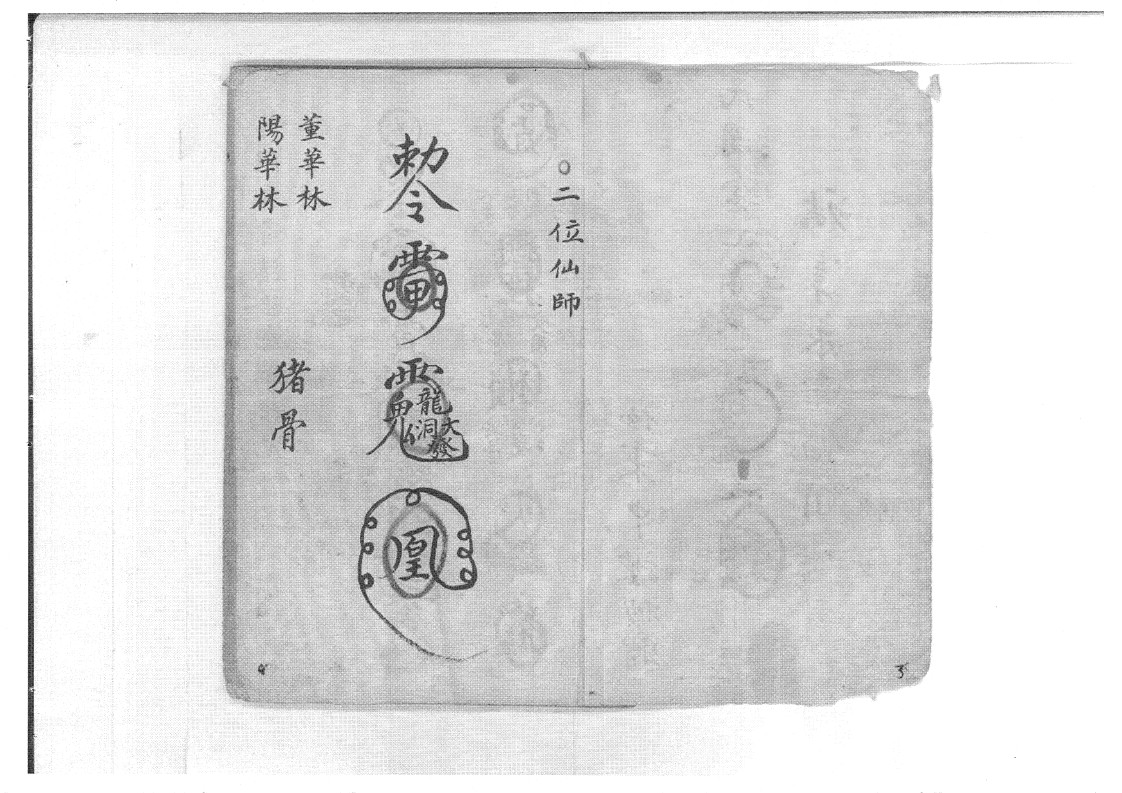 ○二位仙師
勅令
龍
洞
大發
凰
董華林
陽華林
猪骨
4
3